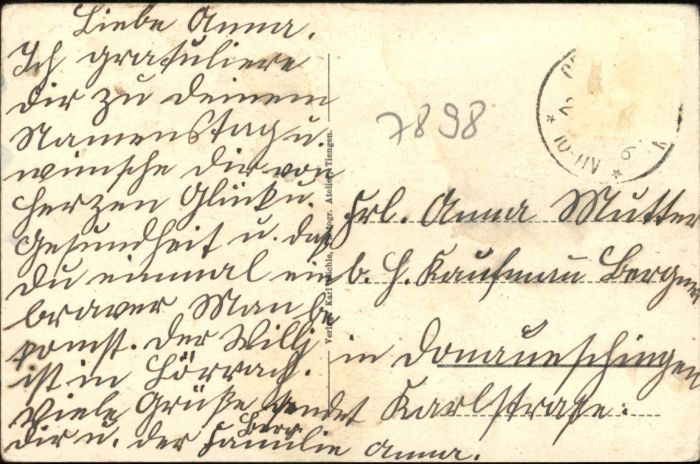 Liebe Anna.
Ich gratuliere
dir zu deinem
Namenstag u.
wünsche dir von
herzen Glück u.
Gesundheit u. das
du einmal ein
braver Man be
komst. der Willi
ist in Lörrach.
Viele Grüße sendet
dir u. der Familie Berg. Anna.
Verlag Karl Photogr. Atelier, Tiengen.
7898
Frl. Anna Mutter
b. H. Kaufmann Berger
in Donaueschingen
Karlstraße.